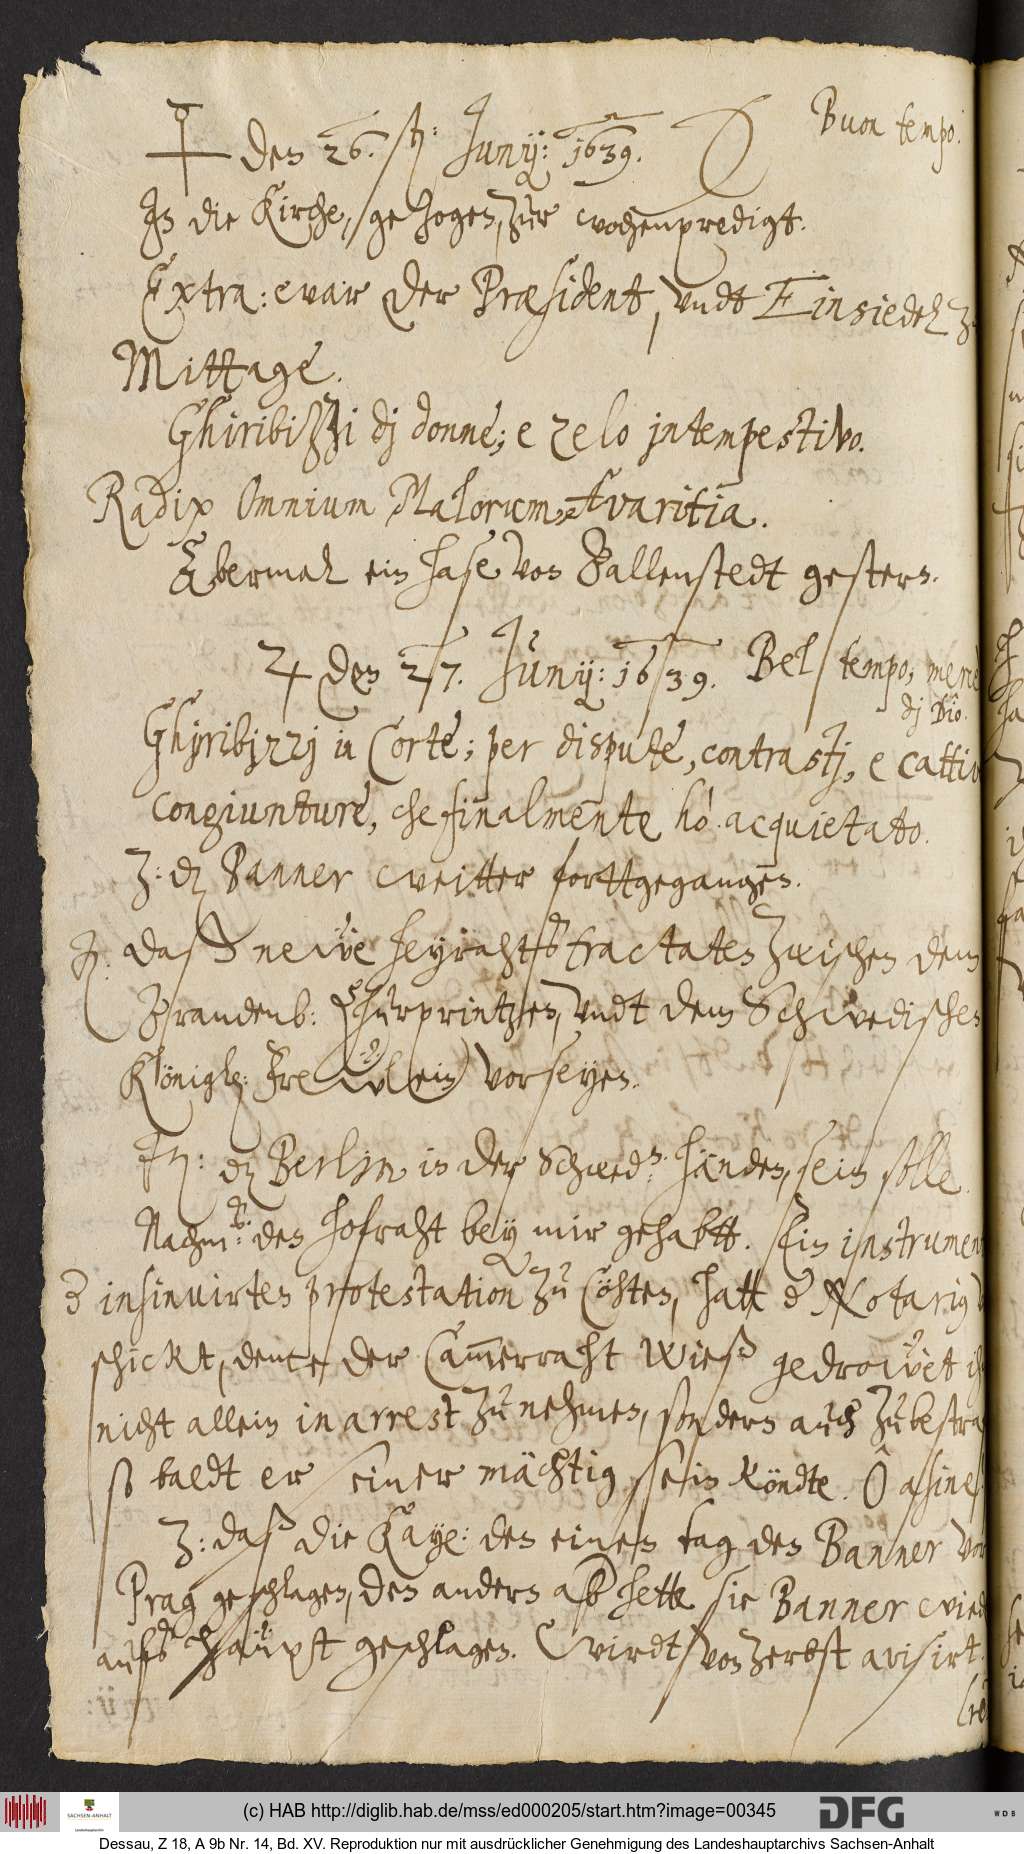 den 26. Junij: 1639. Buon tempo.
In die Kirche, gezogen, zur wochenpredigt.
Extra: war der Præsident, vndt Einsiedel zu
Mittage.
Ghiribizzi dj donne; e zelo intempestivo.
Radix Omnium Malorum, Avaritia.
Abermal ein hase von Ballenstedt gestern.
♃ den 27. Junij: 1639. Bel tempo, mercè
dj Dio.
Ghiribizzj in Corte; per dispute, contrastj, e cattive
congiunture, che finalmente hò acquietato.
Z: dz Banner weitter forttgegangen.
daß newe heyrahtstractaten zwischen dem
Brandenb: Churprintzen, vndt dem Schwedischen
Königl: Frewlein vorseyen.
It: dz Berlin in der Schwed: händen, sein solle.
Nachm: den hofraht bey mir gehabtt. Ein instrument
insinuirten protestation zu Cöhten, hatt Notarius
schickt, deme der Cammerraht Wieß gedrowet ihn
nicht allein in arrest zu nehmen, sondern auch zu bestrafen
so baldt er seiner mächtig sein köndte. Ô asines
Z: daß die Kayß: den einen tag den Banner vor
Prag geschlagen, den andern aber hette sie Banner wieder
aufs haüpt geschlagen. Wirdt von Zerbst avisirt.
(c) HAB http://diglib.hab.de/mss/ed000205/start.htm?image=00345
SACHSEN-ANHALT
DFG
WDB
Dessau, Z 18, A 9b Nr. 14, Bd. XV. Reproduktion nur mit ausdrücklicher Genehmigung des Landeshauptarchivs Sachsen-Anhalt